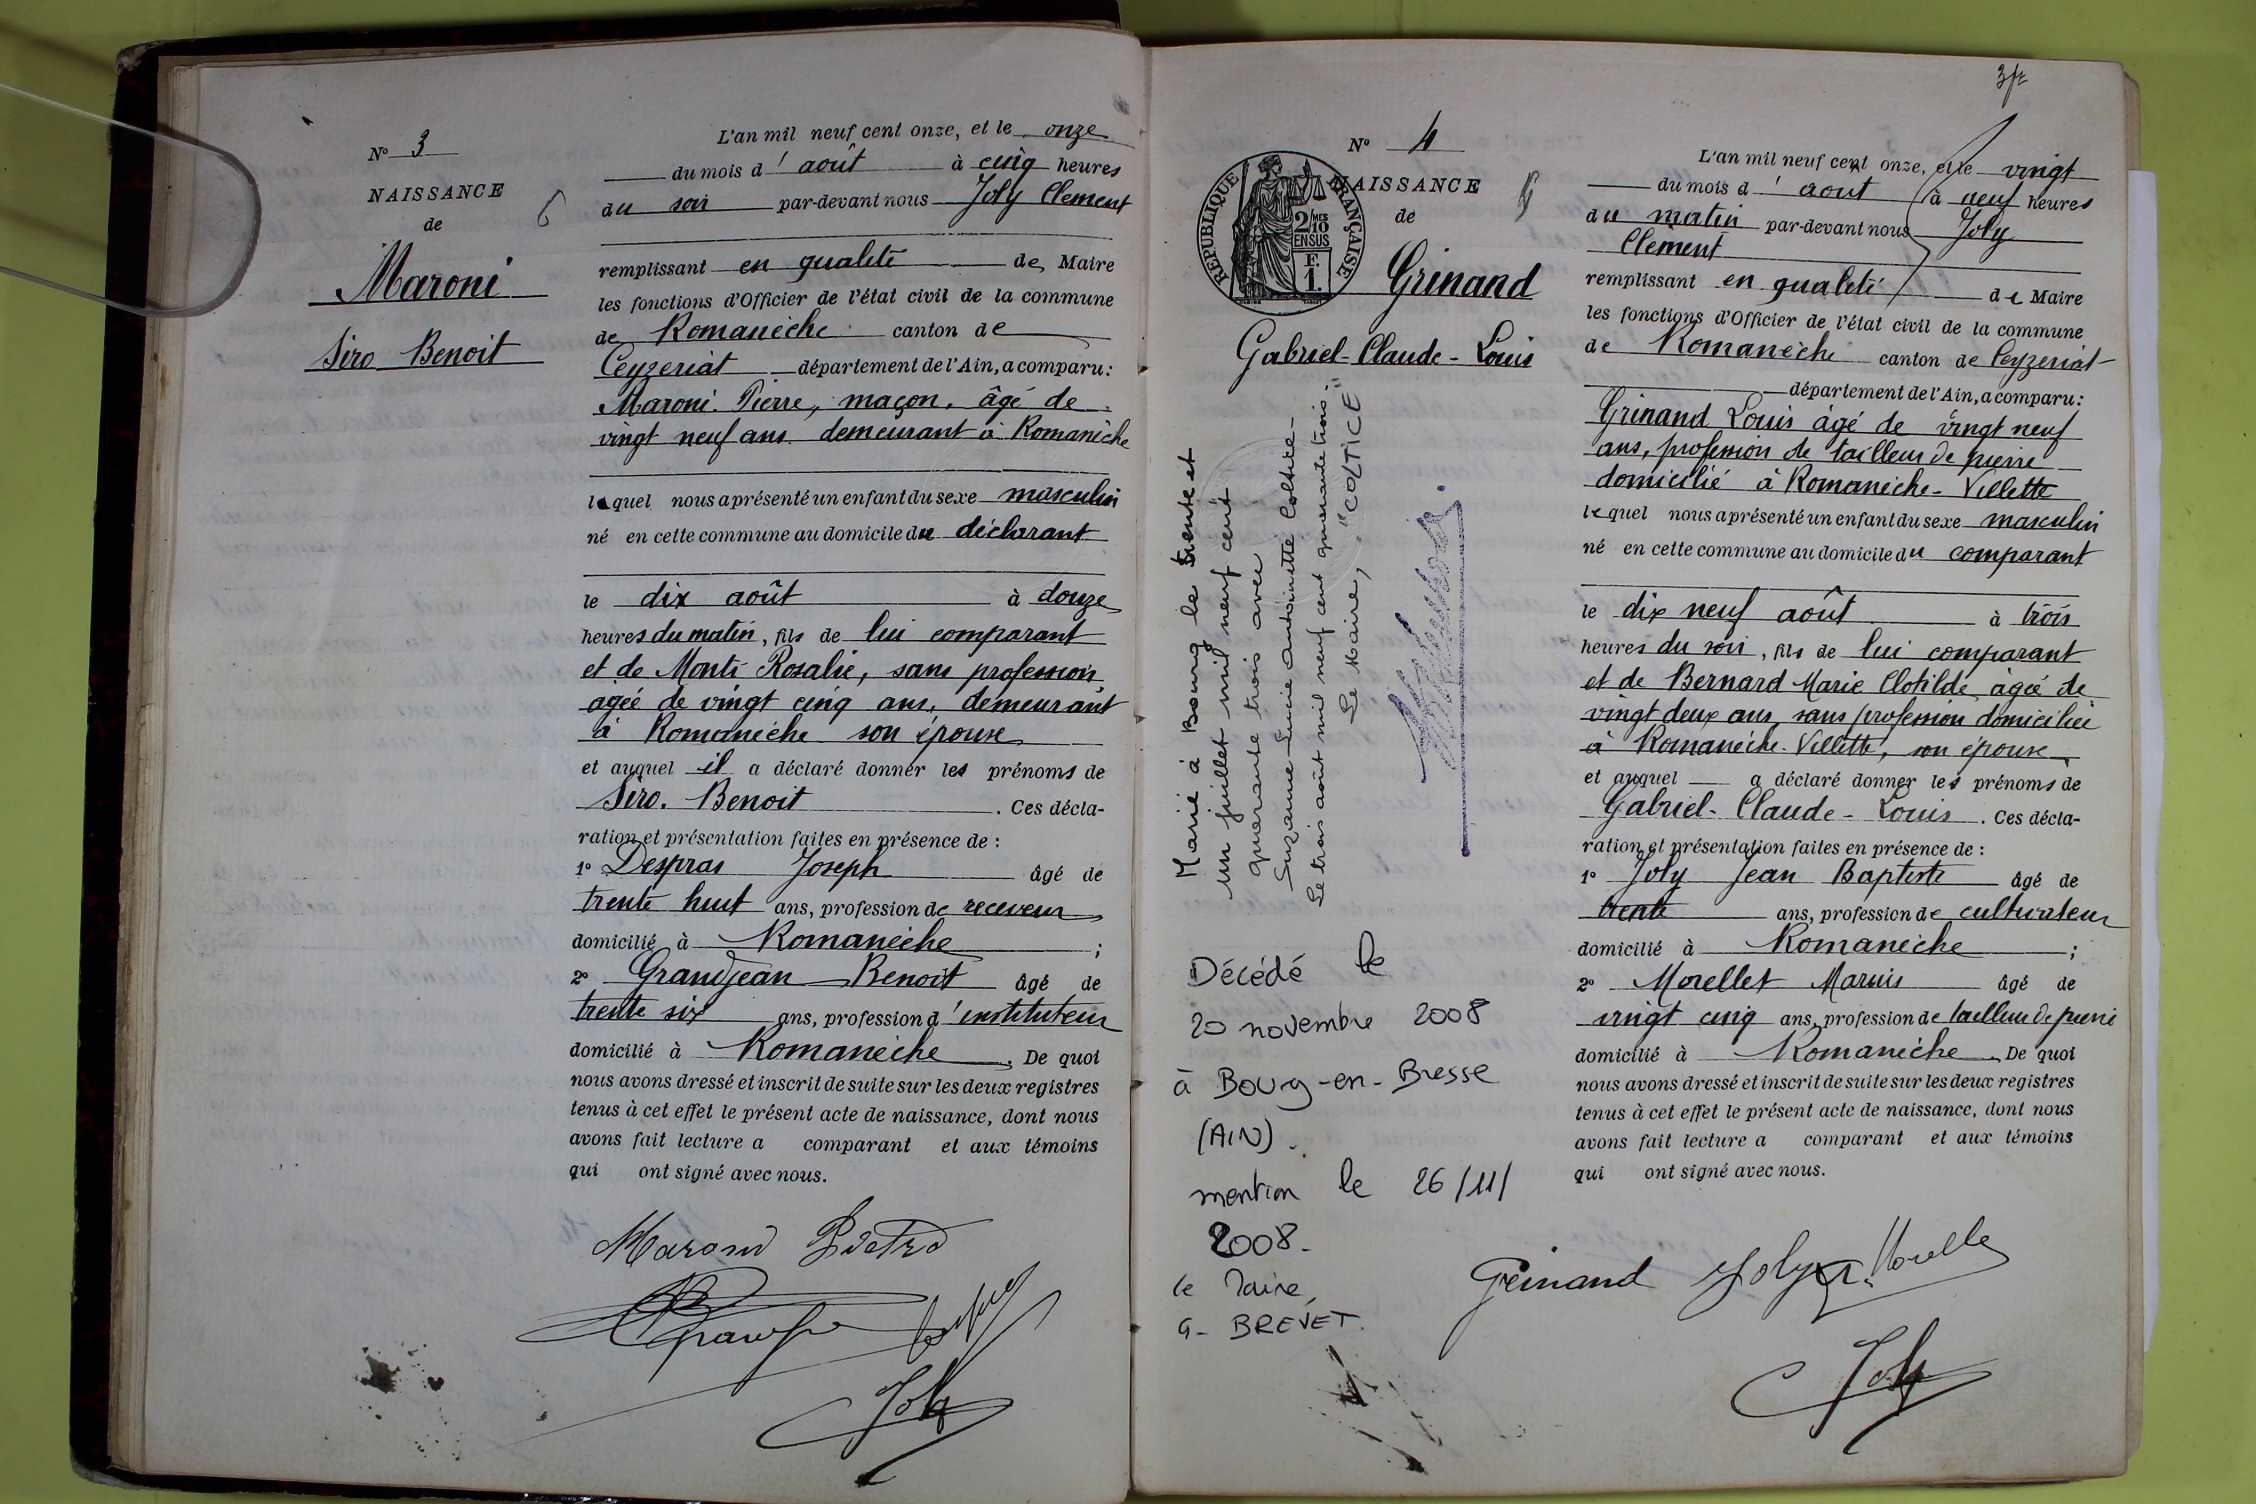 N° 3
NAISSANCE
de
Maroni
Siro Benoit
L'an mil neuf cent onze, et le onze
du mois d' août à cinq heures
du soir par-devant nous Joly Clement
remplissant en qualité de Maire
les fonctions d'Officier de l'état civil de la commune
de Romanèche canton de
Ceyzeriat département de l'Ain, a comparu:
Maroni Pierre, maçon, âgé de
vingt neuf ans demeurant à Romanèche
lequel nous a présenté un enfant du sexe masculin
né en cette commune au domicile du déclarant
le dix août à douze
heures du matin, fils de lui comparant
et de Monti Rosalie, sans profession,
agée de vingt cinq ans, demeurant
à Romanèche son épouse
et auquel il a déclaré donner les prénoms de
Siro. Benoit. Ces décla-
ration et présentation faites en présence de :
1° Despras Joseph âgé de
trente huit ans, profession de receveur
domicilié à Romanèche ;
2° Grandjean Benoit âgé de
trente six ans, profession d'instituteur
domicilié à Romanèche. De quoi
nous avons dressé et inscrit de suite sur les deux registres
tenus à cet effet le présent acte de naissance, dont nous
avons fait lecture a comparant et aux témoins
qui ont signé avec nous.
Maroni Pietro
Joly
3fr
N° 4
NAISSANCE
de
RÉPUBLIQUE FRANÇAISE
2/10 MES
EN SUS
F.
1.
Grinand
Gabriel-Claude-Louis
Marié à Bourg le trente et
un juillet mil neuf cent
quarante trois avec
Suzanne Lucie Antoinette Coltice-
Le trois août mil neuf cent quarante trois.
Le Maire, "COLTICE"
Décédé le
20 novembre 2008
à Bourg-en-Bresse
(AIN).
mention le 26/11/
2008-
le Maire,
G- BREVET.
L'an mil neuf cent onze, et le vingt
du mois d' août à neuf heures
du matin par-devant nous Joly
Clément
remplissant en qualité de Maire
les fonctions d'Officier de l'état civil de la commune
de Romanèche canton de Ceyzeriat
département de l'Ain, a comparu:
Grinand Louis âgé de vingt neuf
ans, profession de tailleur de pierre
domicilié à Romanèche-Villette
lequel nous a présenté un enfant du sexe masculin
né en cette commune au domicile du comparant
le dix neuf août à trois
heures du soir, fils de lui comparant
et de Bernard Marie Clotilde, âgée de
vingt deux ans, sans profession domiciliée
à Romanèche-Villette, son épouse
et auquel a déclaré donner les prénoms de
Gabriel-Claude-Louis. Ces décla-
ration et présentation faites en présence de :
1° Joly Jean Baptiste âgé de
trente ans, profession de cultivateur
domicilié à Romanèche ;
2° Morellet Marius âgé de
vingt cinq ans, profession de tailleur de pierre
domicilié à Romanèche. De quoi
nous avons dressé et inscrit de suite sur les deux registres
tenus à cet effet le présent acte de naissance, dont nous
avons fait lecture a comparant et aux témoins
qui ont signé avec nous.
Grinand Joly
Joly